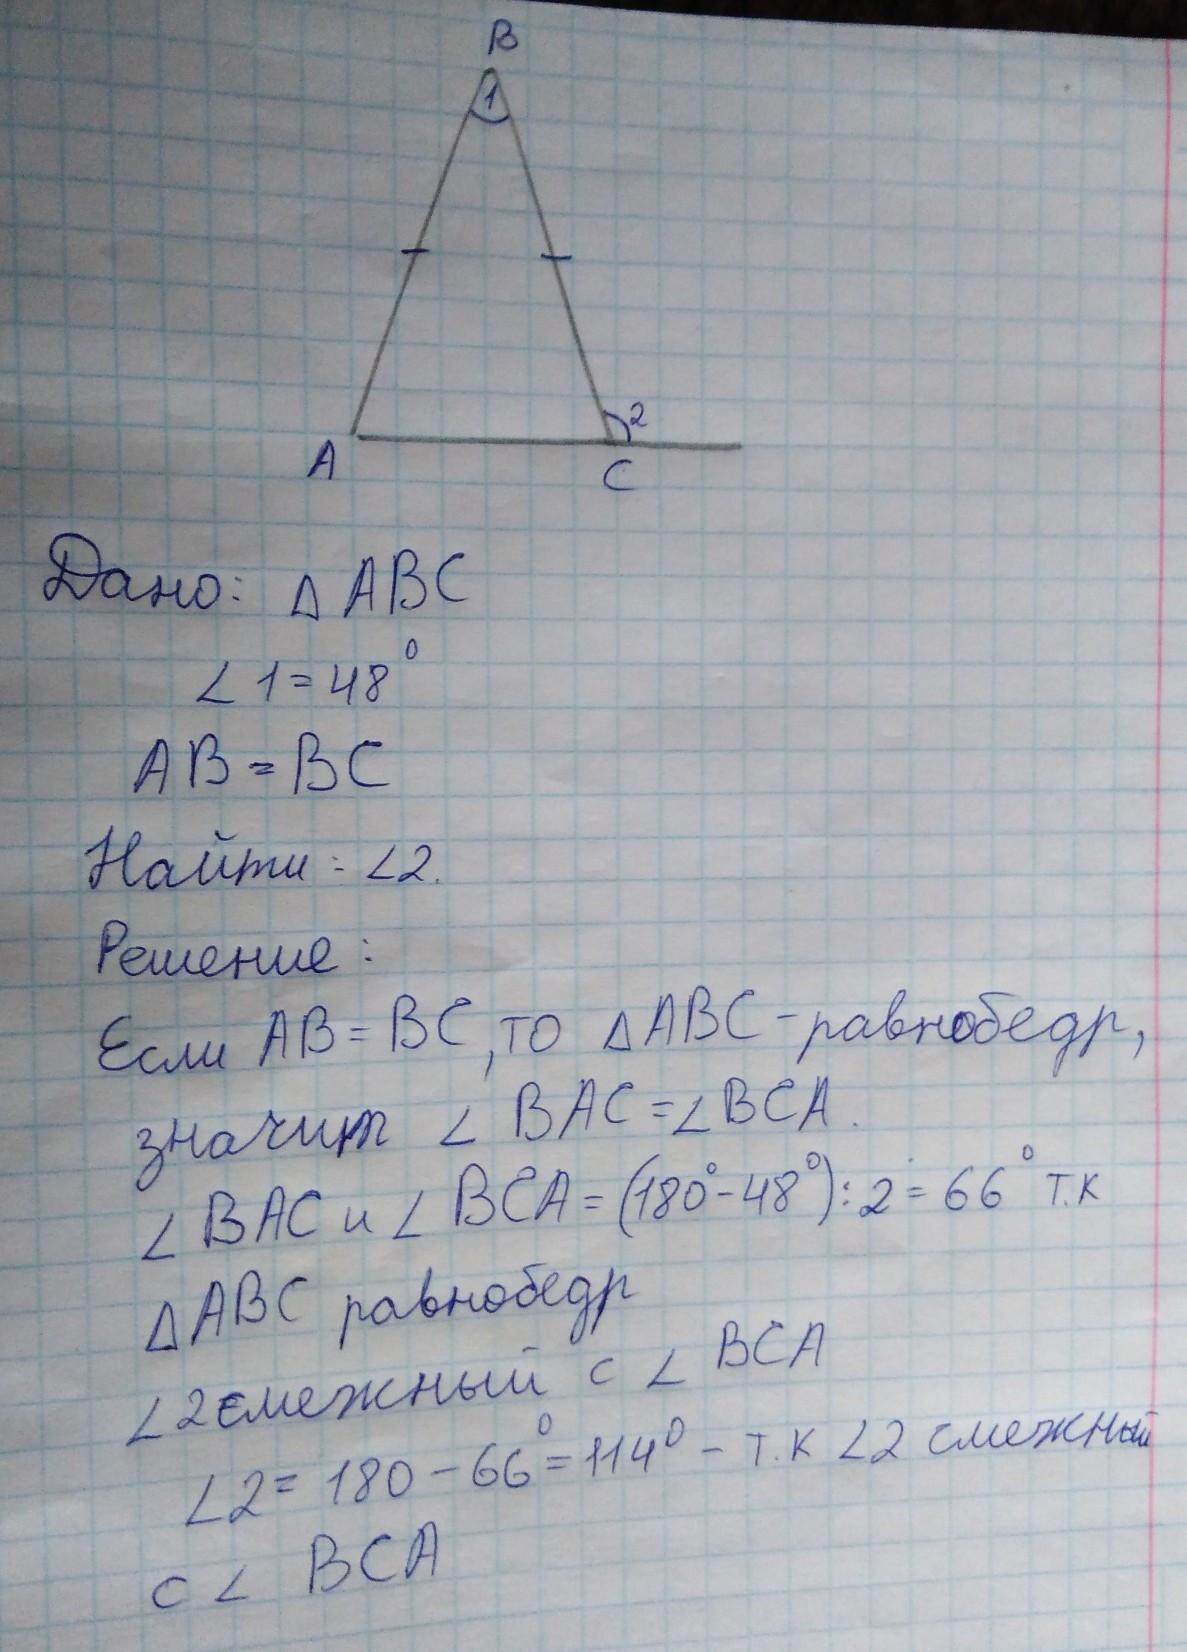 B
1
2
A
C
Дано: △ ABC
∠1=48°
AB=BC
Найти: ∠2.
Решение:
Если AB=BC, то △ABC-равнобедр,
значит ∠BAC=∠BCA.
∠BAC и ∠BCA=(180°-48°):2=66° т.к
△ABC равнобедр
∠2 смежный с ∠BCA
∠2=180-66°=114°- т.к ∠2 смежный
с ∠BCA